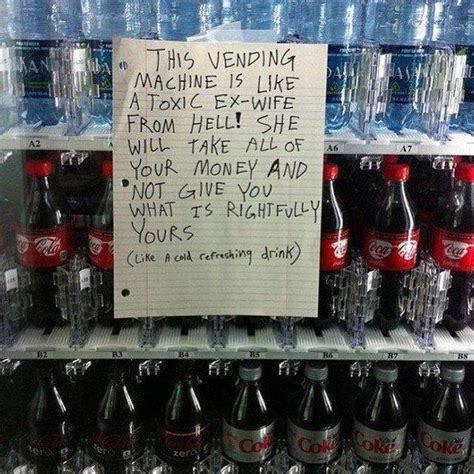 THIS VENDING
MACHINE IS LIKE
A TOXIC EX-WIFE
FROM HELL! SHE
WILL TAKE ALL OF
YOUR MONEY AND
NOT GIVE YOU
WHAT IS RIGHTFULLY
YOURS
(LIKE A cold refreshing drink)
A2
A6
A7
B2
B3
B4
B5
B6
B7
B8
zero
zero
zero
Coke
Coke
Coke
Coke